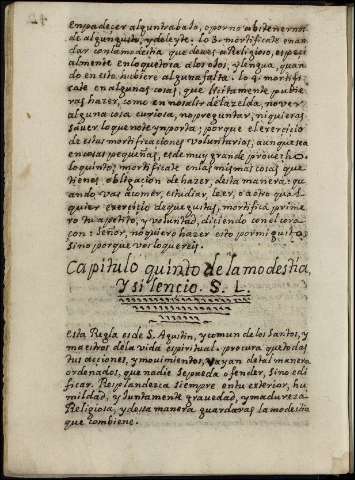 en padecer algun trabajo, o por no abstenernos
de algun gusto, y deleyte. lo 3. mortificate en an-
dar con la modestia que deves a Religioso, especi-
almente en lo que toca a los ojos, y lengua, quan-
do en esto hubiere alguna falta. lo 4. mortifi-
cate en algunas cosas, que licitamente pudie-
ras hazer, como en no salir de la zelda, no ver
alguna cosa curiosa, no preguntar, ni quieras
saver lo que no te ynporta; porque el exercicio
de estas mortificaciones voluntarias, aunque sea
en cosas pequeñas, es de muy grande provecho.
lo quinto, mortificate en las mismas cosas que
tienes obligacion de hazer, desta manera: qu-
ando vas a comer, estudiar, leer, o a otro qual-
quier exercicio de que gustas, mortifica prime-
ro tu apetito, y voluntad, diciendo con el cora-
çon: Señor, no quiero hazer esto por mi gusto,
sino porque vos lo quereis.
Capitulo quinto de la modestia,
Y silencio. S. L.
Esta Regla es de S. Agustin, y comun de los Santos, y
maestros de la vida espiritual. procura que todas
tus acciones, y movimientos, vayan de tal manera
ordenados, que nadie se pueda ofender, sino edi-
ficar. Resplandezca siempre en tu exterior, hu-
mildad, y juntamente gravedad, y madureza
Religiosa, y desta manera guardaras la modestia
que combiene.